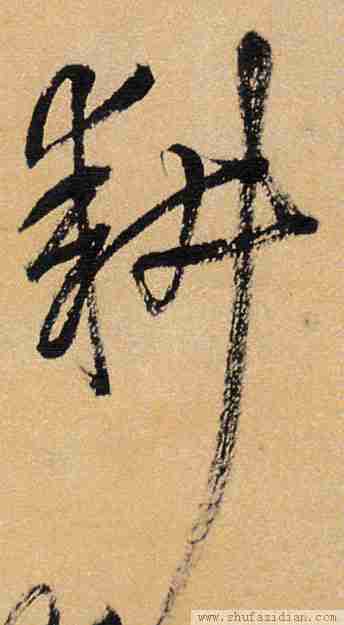 耕
www.shufazidian.com